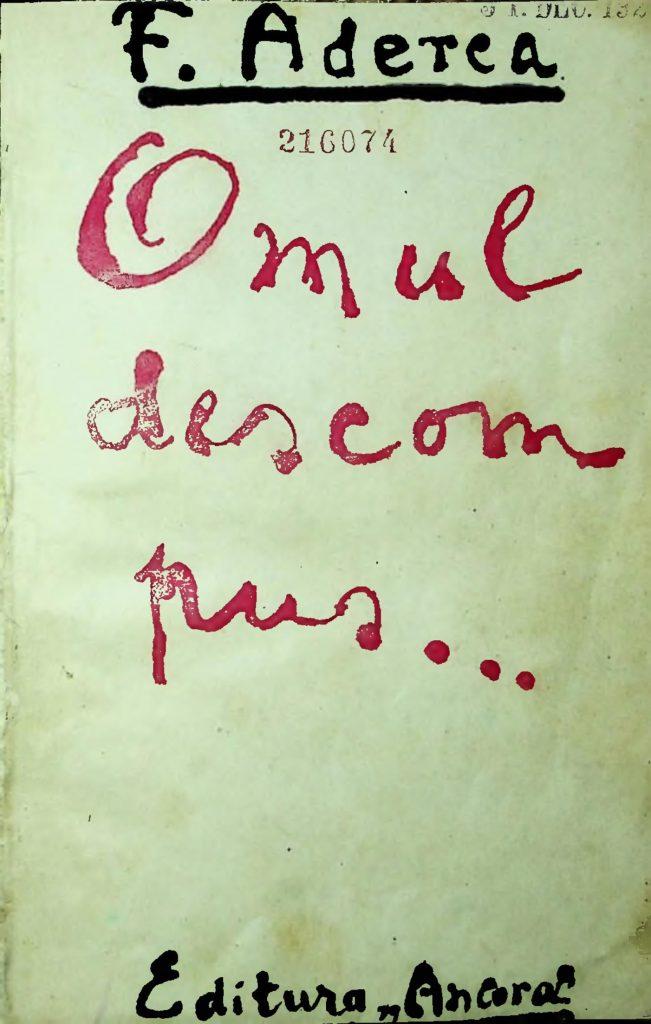 DEC. 192
F. Aderca
216074
Omul
descom
pus...
Editura „Ancora"